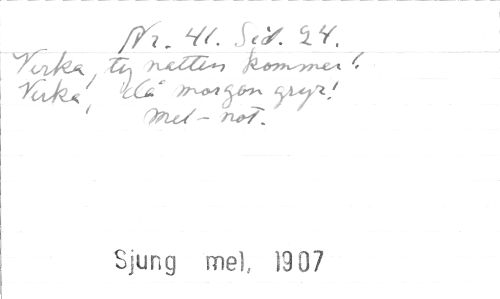 Nr. 41. Sid. 24.
Virka, ty natten kommer!
Virka, då morgon gryr!
Mel-not.
Sjung mel, 1907